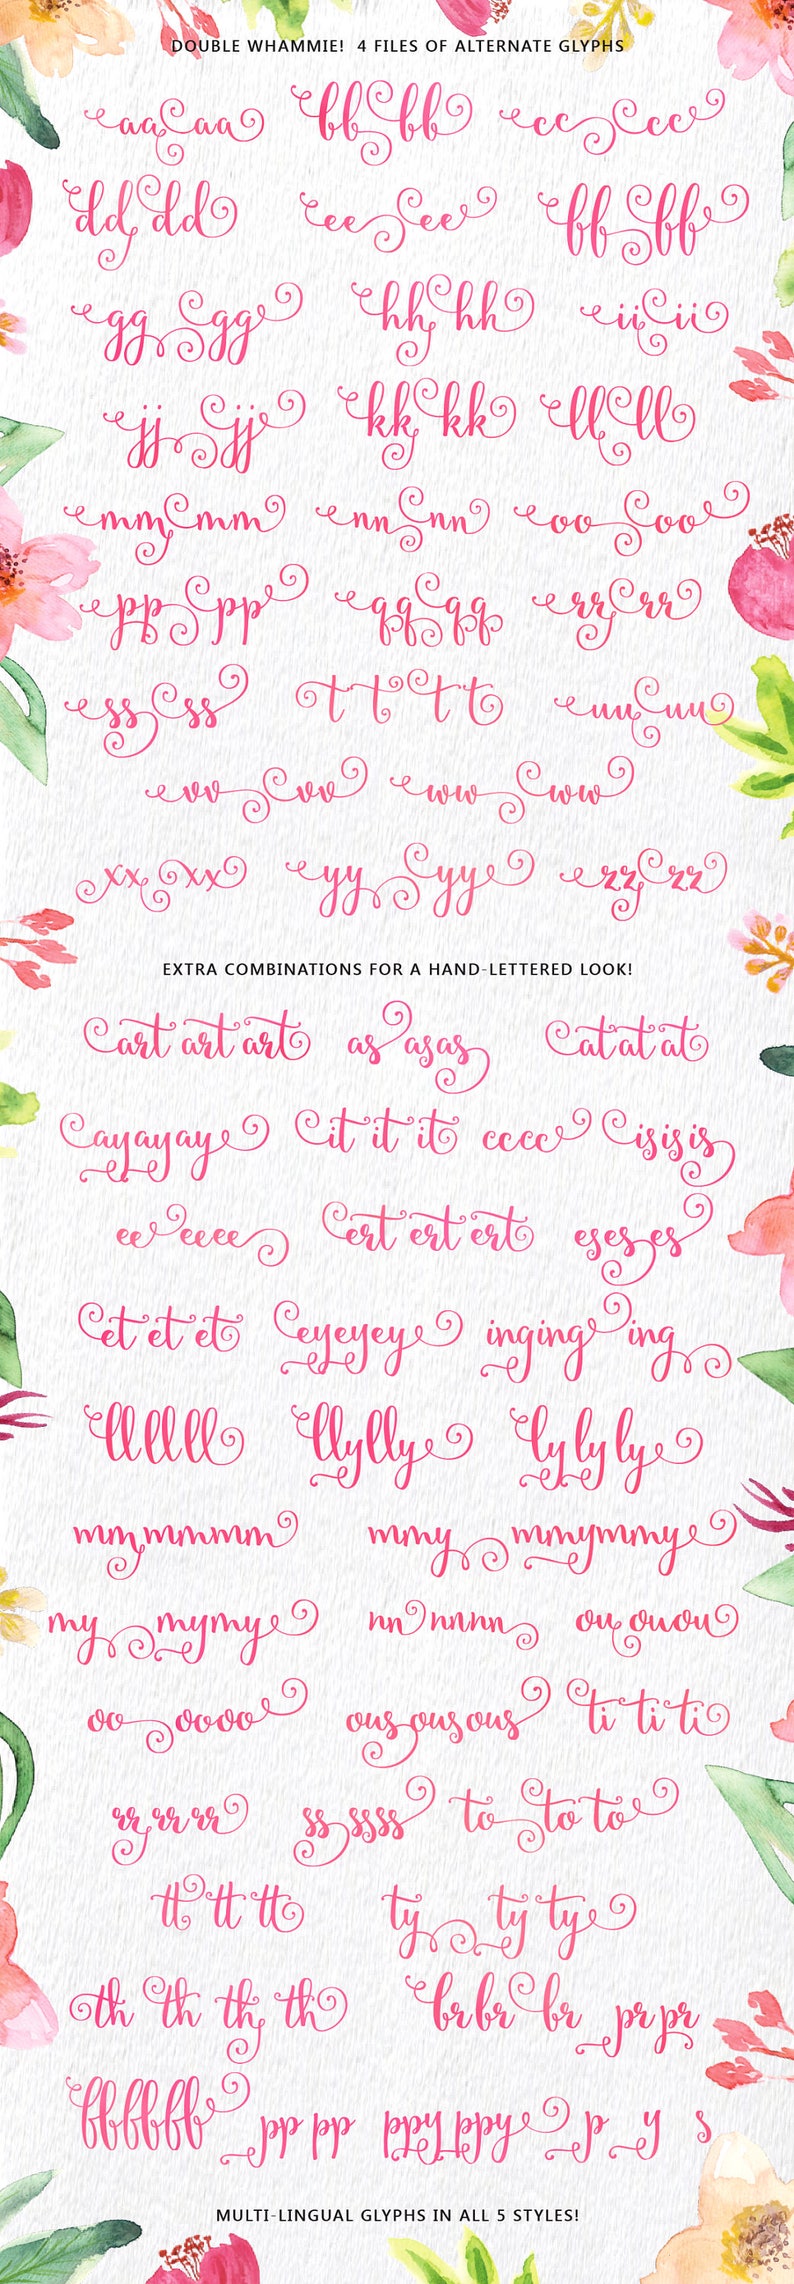 DOUBLE WHAMMIE! 4 FILES OF ALTERNATE GLYPHS
aa aa bb bb cc cc
dd dd ee ee ff ff
gg gg hh hh ii ii
jj jj kk kk ll ll
mm mm nn nn oo oo
pp pp qq qq rr rr
ss ss t t t t uu uu
vv vv ww ww
xx xx yy yy zz zz
EXTRA COMBINATIONS FOR A HAND-LETTERED LOOK!
art art art as as as at at at
ay ay ay it it it cc cc is is is
ee ee ee ert ert ert es es es
et et et ey ey ey ing ing ing
ll ll ll lly lly ly ly ly
mm mm mm mmy mmy mmy
my my my nn nn nn ou ou ou
oo oo oo ous ous ous ti ti ti
rr rr rr ss ss ss to to to
tt tt tt ty ty ty
th th th th br br br pr pr
ff ff ff pp pp ppy ppy p y s
MULTI-LINGUAL GLYPHS IN ALL 5 STYLES!